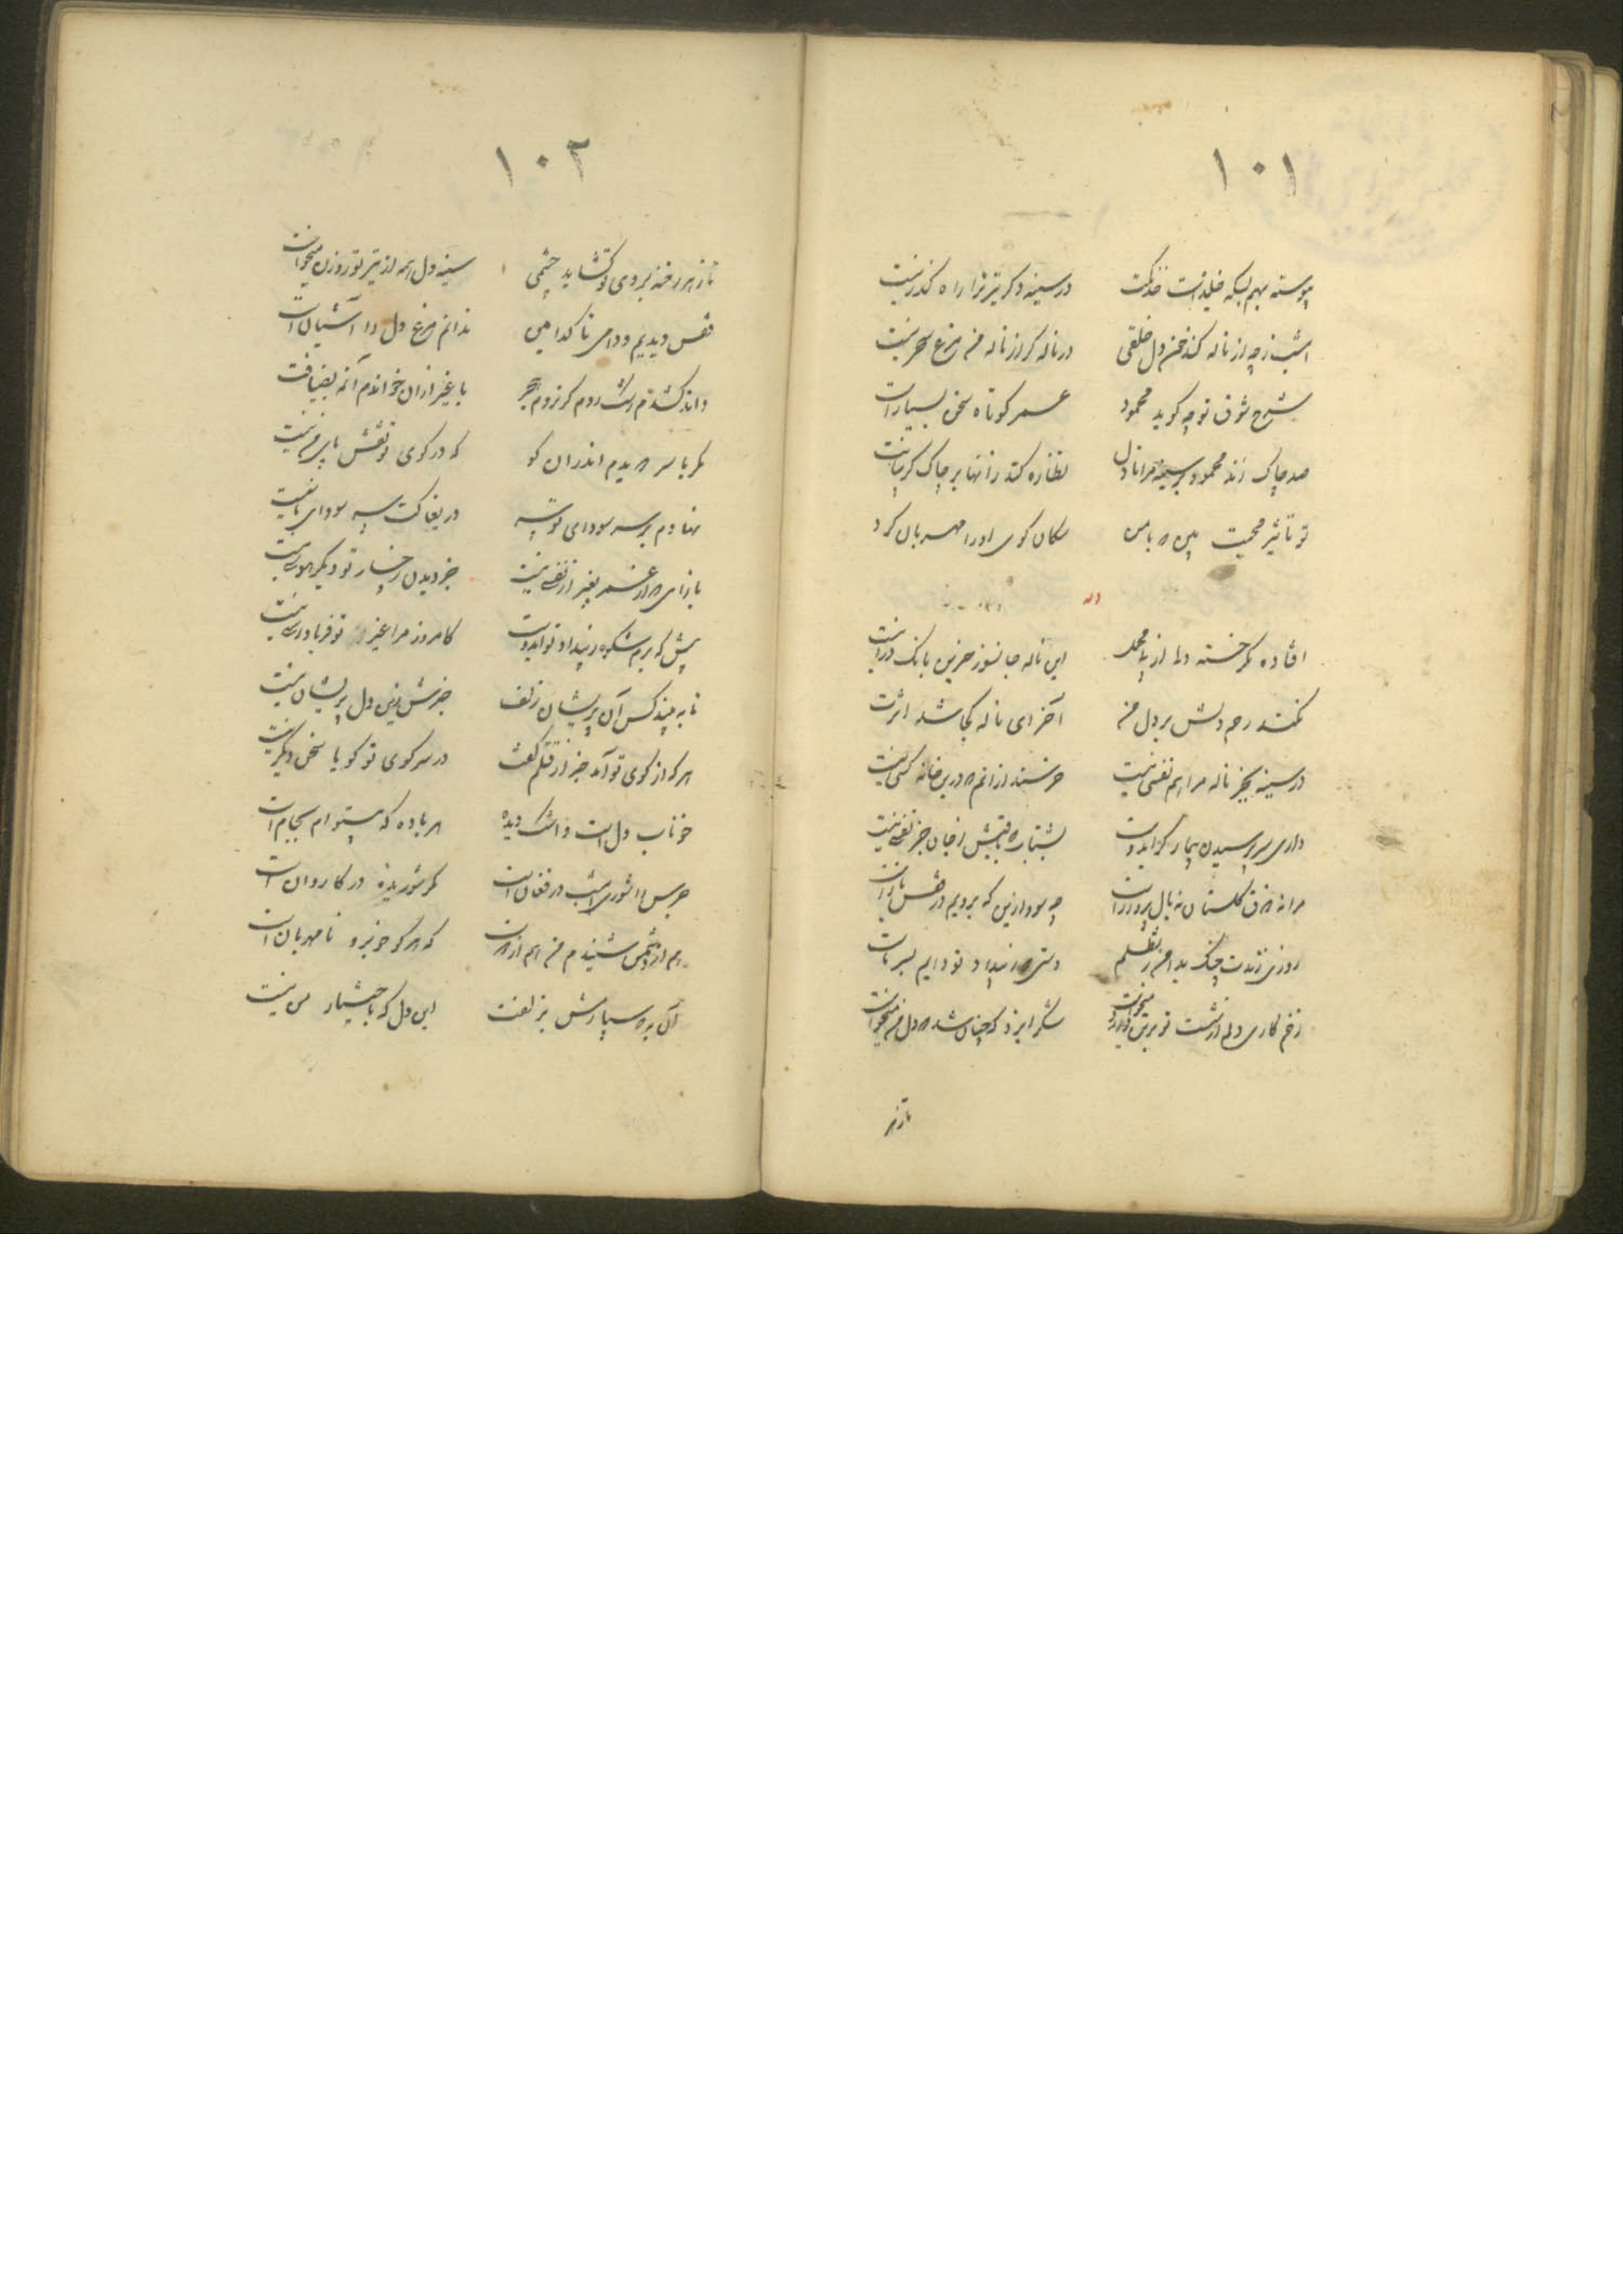 ١٠١
پیوسته بهم بسکه خلیده است خدنگت در سینه دگر تیر ترا راه گذر نیست
امشب ز چه از ناله کند خون دل خلقی در ناله گر از ناله من مرغ سحر نیست
شرح شوق تو چه گوید محمود عمر کوتاه سخن بسیار است
صد چاک زند محمود بر سینه مرا تا دل نظاره کند زانها بر چاک گریبانت
تو تأثیر محبت بین که با من سگان کوی او را مهربان کرد
وله
افتاده مگر خسته دلی از پی محمل این ناله جانسوز حزین بانگ درا نیست
نکند رحم دلش بر دل من آخر ای ناله کجا شد اثرت
در سینه بجز ناله مرا هم نفسی نیست خرسند از انم که درین خانه کسی نیست
داری سر پرسیدن بیمار گر ایدوست بشتاب که باقیش ز جان جز نفسی نیست
مرا نه ذوق گلستان نه بال پرواز است چه سود ازین که برویم در قفس باز است
روزی زندت چنگ بدامن ز تظلم دستی که ز بیداد تو دایم بسر ماست
زخم کاری دلم از شست تو بر تن میخواست شکر ایزد که چنان شد که دل من میخواست
تا ز هر
١٠٢
تا ز هر رخنه بروی تو گشاید چشمی سینه دل همه از تیر تو روزن میخواست
قفس دیدیم و دامی تا کدامین ندانم مرغ دل را آشیان است
با غیر از ان خواندم آنمه بضیافت
مگر با سر دویدم اندران کو که در کوی تو نقش پای من نیست
نهادم بر سر سودای تو سر دریغا کت سر سودای ما نیست
باز ای که از عمر بغیر از نفسی نیست جز دیدن رخسار تو دیگر هوسی نیست
پیش که برم شکوه ز بیداد تو ایدوست کامروز مرا غیر تو فریادرسی نیست
تا به بیند کس آن پریشان زلف خبرش زین دل پریشان نیست
هر که از کوی تو آمد خبر از قتلم گفت در سر کوی تو گویا سخن دیگر نیست
خوناب دل است و اشک دیده هر باده که بیتو ام بجام است
جرس را شوری امشب در فغان است مگر شوریده در کاروان است
هم از دشمن شنیدم من هم از دوست که هر کو خوبرو نامهربان است
آن به که سپارمش بزلفت این دل که باختیار من نیست